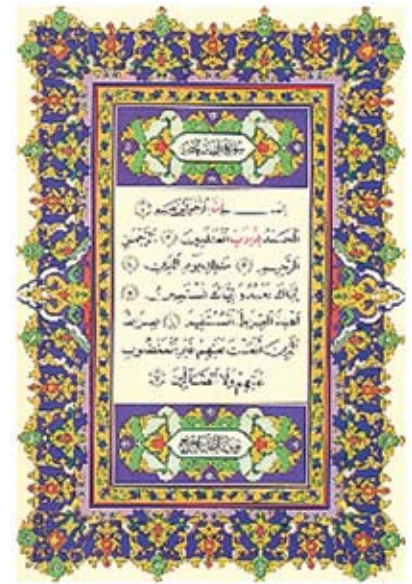 بسم الله الرحمن الرحيم
الحمد لله رب العالمين الرحمن
الرحيم مالك يوم الدين
إياك نعبد وإياك نستعين
اهدنا الصراط المستقيم صراط
الذين أنعمت عليهم غير المغضوب
عليهم ولا الضالين